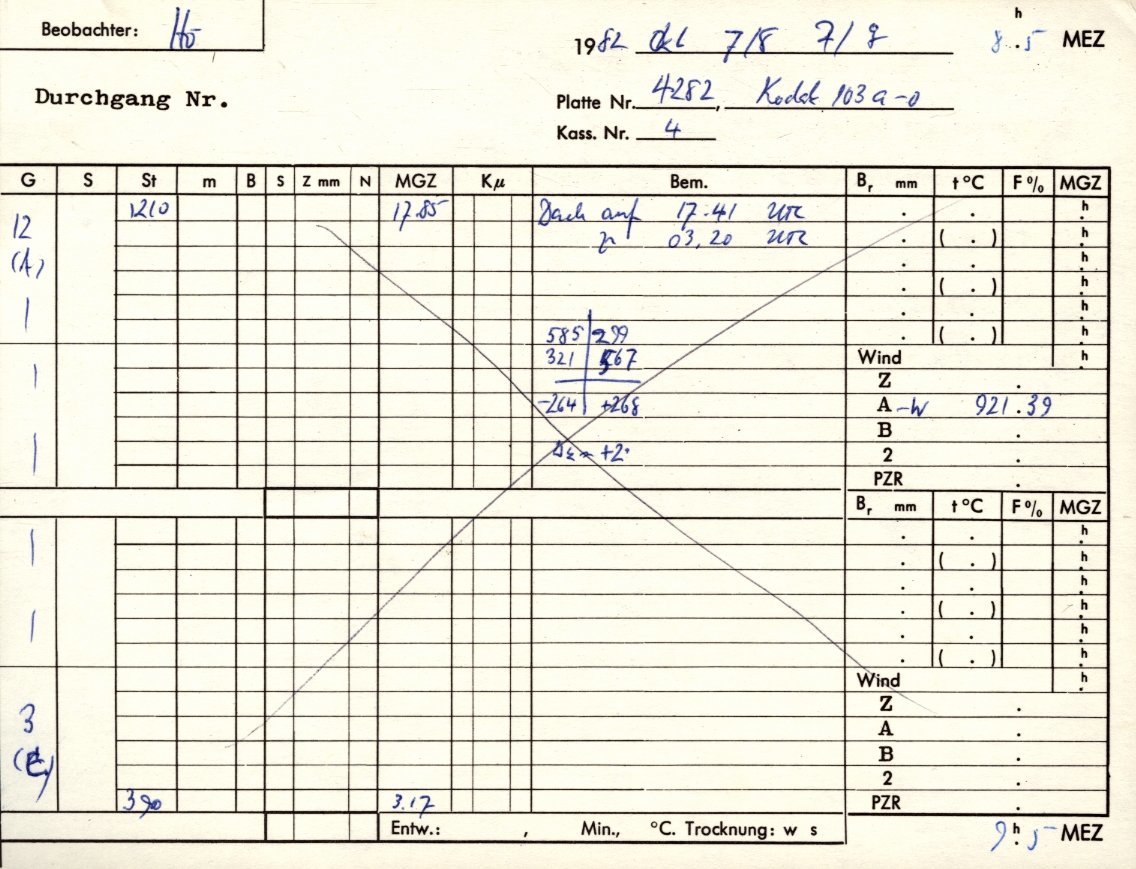 Beobachter: Hö
1982 Okt 7/8 7/8 8.5 h MEZ
Durchgang Nr.
Platte Nr. 4282, Kodak 103a-o
Kass. Nr. 4
G S St m B S Z mm N MGZ Kμ Bem. Br mm t °C F % MGZ
12 1210 17.85 Dach auf 17.41 UTC . . h
zu 03.20 UTC . ( . ) h
(A) . . h
. ( . ) h
| . . h
585 | 299 . ( . ) h
321 | 567 Wind h
| Z .
-264 | +268 A -W 921.39
B .
| +2 2 .
PZR .
Br mm t °C F % MGZ
. . h
| . ( . ) h
. . h
. ( . ) h
| . . h
. ( . ) h
Wind h
Z .
3 A .
(E) B .
2 .
390 3.17 PZR .
Entw.: , Min., °C. Trocknung: w s 9 h.5 MEZ